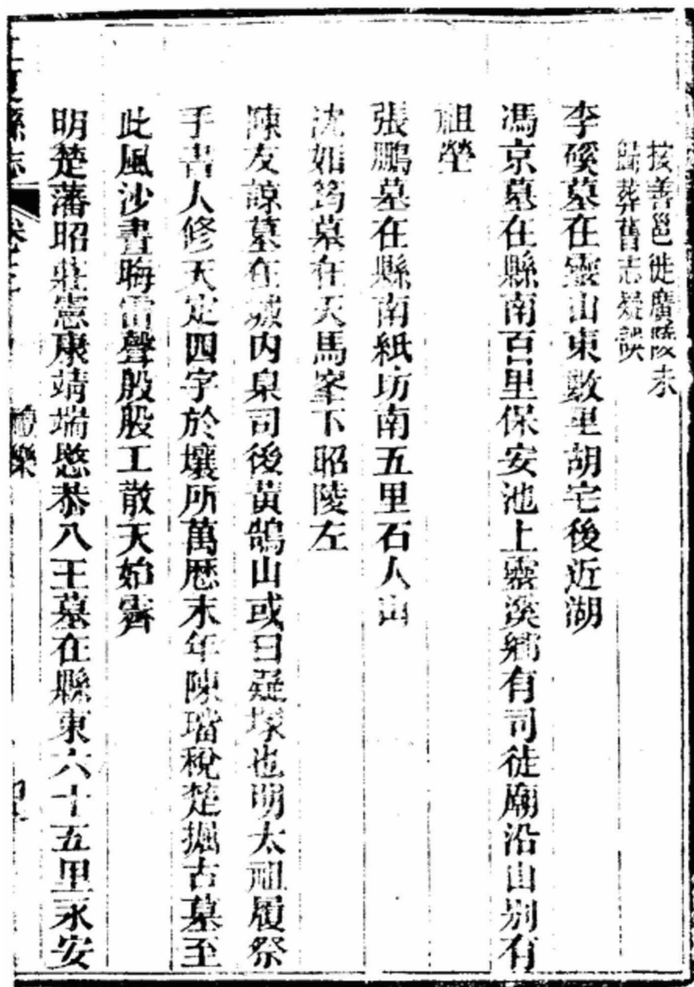 按善邕徙廣陵未
歸葬舊志疑誤
李磎墓在靈山東數里胡宅後近湖
馮京墓在縣南百里保安池上靈溪鄉有司徒廟沿山别有
祖塋
張鵬墓在縣南紙坊南五里石人山
沈如筠墓在天馬峯下昭陵左
陳友諒墓在城内臬司後黃鵠山或曰疑塚也明太祖履祭
手書人修天定四字於壤所萬歷末年陳璫稅楚掘古墓至
此風沙晝晦雷聲殷殷工散天始霽
明楚藩昭莊憲康靖端愍恭八王墓在縣東六十五里永安
江夏縣志 卷之三